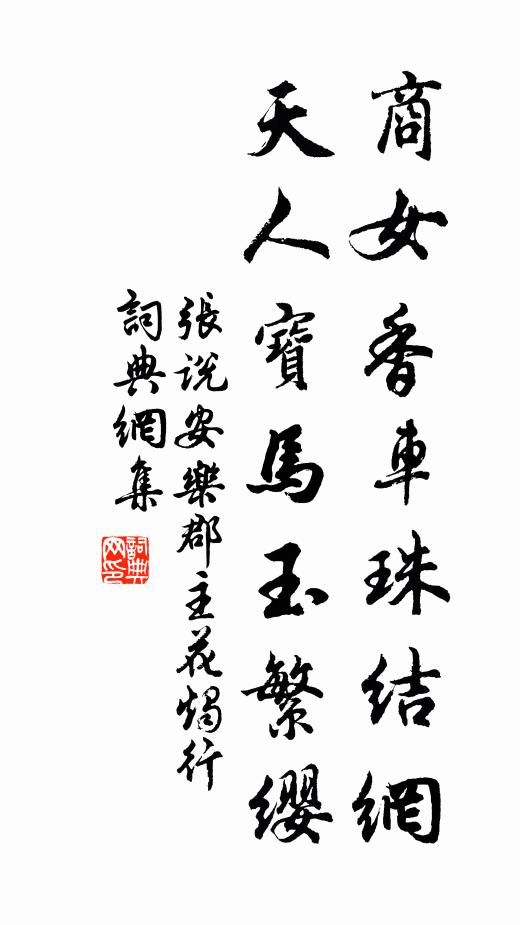 商女香車珠結網
天人寶馬玉繁纓
張説安樂郡主花燭行
詞典網集
詞典网印